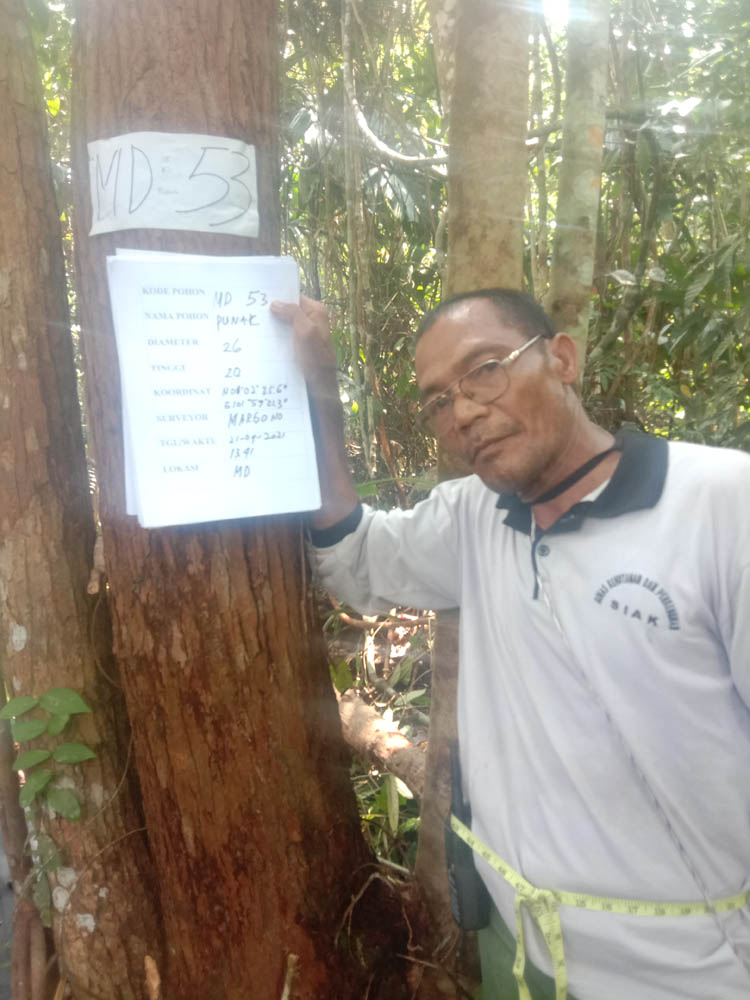 MD 53
KODE POHON MD 53
NAMA POHON PUNAK
DIAMETER 26
TINGGI 20
KOORDINAT N 00° 02' 25.6"
E 101° 59' 21.3"
SURVEYOR MARGONO
TGL/WAKTU 21-09-2021
13.41
LOKASI MD
DINAS KEHUTANAN DAN PERKEBUNAN
SIAK